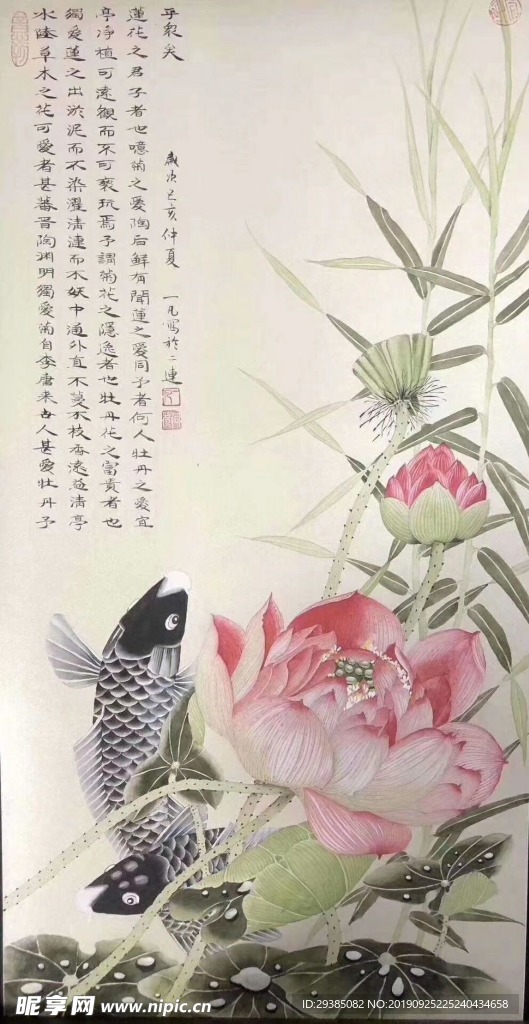 水陸草木之花可愛者甚蕃晋陶渊明獨愛菊自李唐来世人甚愛牡丹予
獨愛蓮之出淤泥而不染濯清漣而不妖中通外直不蔓不枝香遠益清亭
亭净植可遠觀而不可褻玩焉予謂菊花之隱逸者也牡丹花之富貴者也
蓮花之君子者也噫菊之愛陶后鮮有聞蓮之愛同予者何人牡丹之愛宜
乎衆矣
歲次己亥仲夏 一凡寫於二連
昵享网 www.nipic.cn
ID:29385082 NO:20190925225240434658